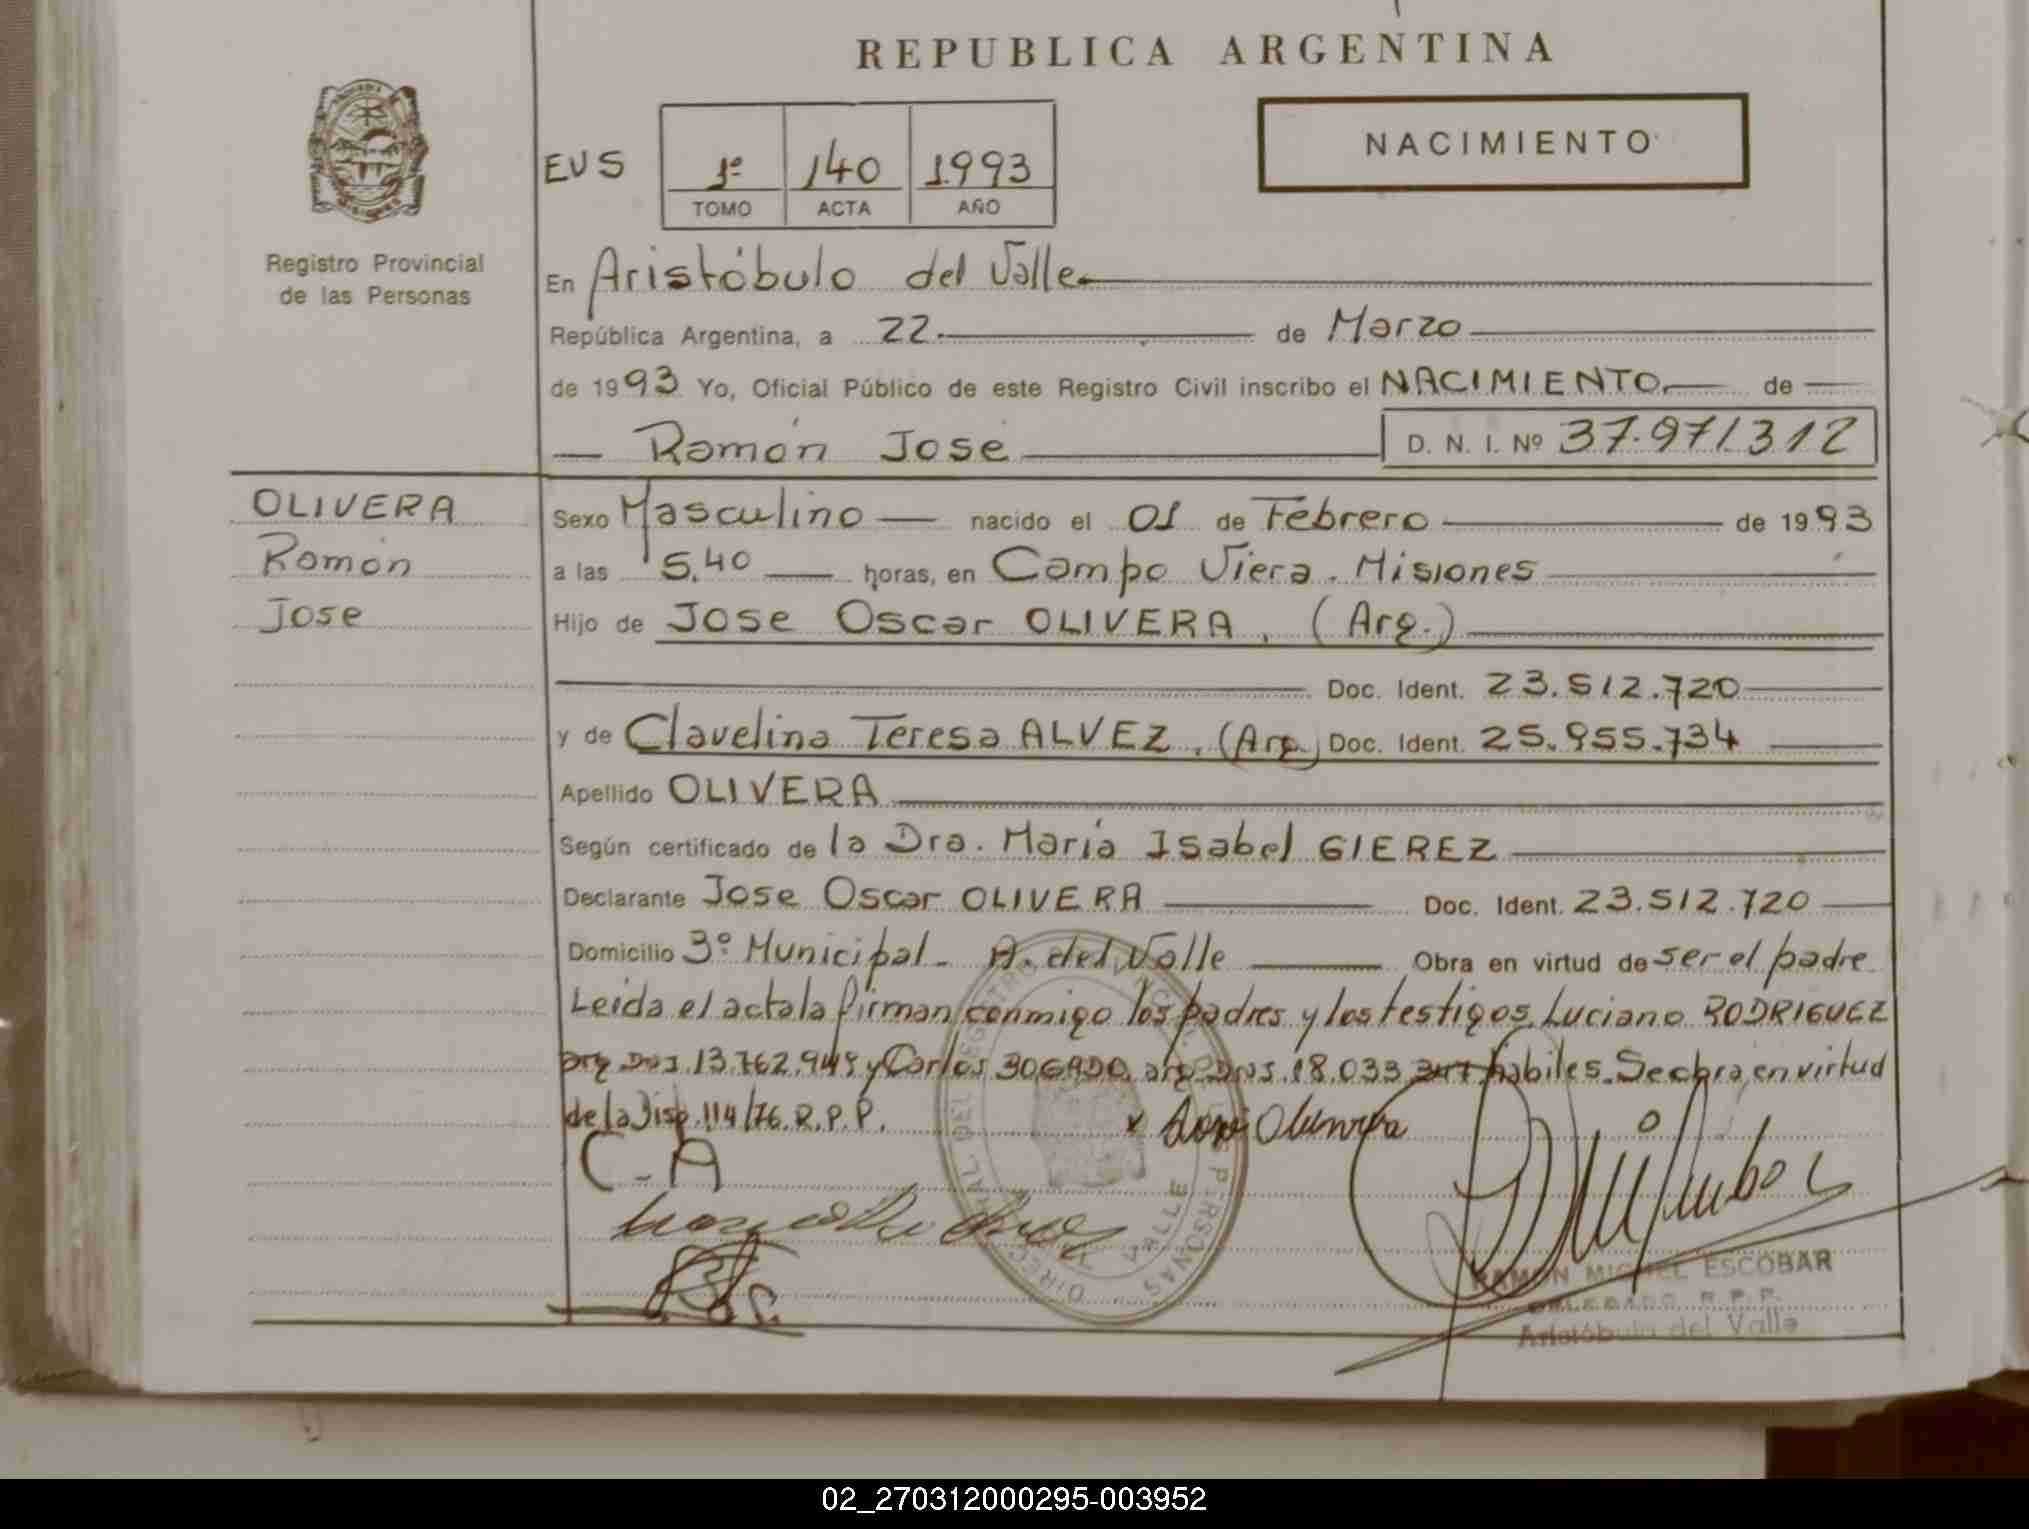 REPUBLICA ARGENTINA
NACIMIENTO
EVS 1º 140 1993
TOMO ACTA AÑO
Registro Provincial
de las Personas
En Aristóbulo del Valle
República Argentina, a 22 de Marzo
de 1993 Yo, Oficial Público de este Registro Civil inscribo el NACIMIENTO de
Ramón José D. N. I. Nº 37.971.312
OLIVERA
Ramón
Jose
Sexo Masculino nacido el 01 de Febrero de 1993
a las 5,40 horas, en Campo Viera. Misiones
Hijo de Jose Oscar OLIVERA, (Arg.)
Doc. Ident. 23.512.720
y de Clavelina Teresa ALVEZ, (Arg.) Doc. Ident. 25.955.734
Apellido OLIVERA
Según certificado de la Dra. María Isabel GIEREZ
Declarante Jose Oscar OLIVERA Doc. Ident. 23.512.720
Domicilio 3º Municipal - A. del Valle Obra en virtud de ser el padre
Leida el acta la firman conmigo los padres y los testigos Luciano RODRIGUEZ
arg. 13.762.949 y Carlos BOGADO, arg. 18.033 hábiles. Se obra en virtud
de la Disp. 114/76. R.P.P.
C-A
RAMON MIGUEL ESCOBAR
DELEGADO R.P.P.
Aristóbulo del Valle
02_270312000295-003952